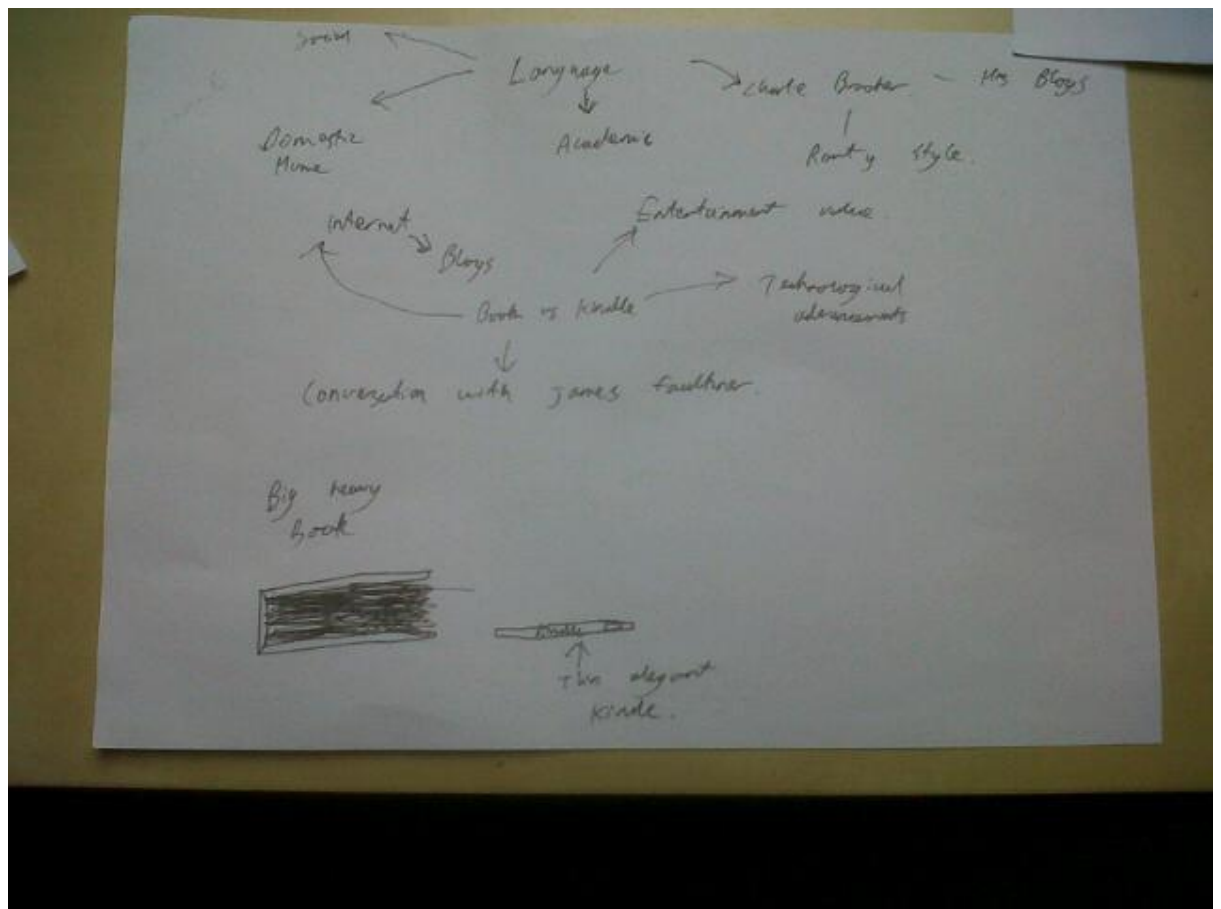 Social
Language
Charle Brooker - His Blogs
Domestic
Home
Academic
Ranty style.
Internet
Entertainment value.
Blogs
Technological
advancements
Book vs Kindle
Conversation with James Faulkner.
Big heavy
Book
Kindle
Thin elegant
Kindle.